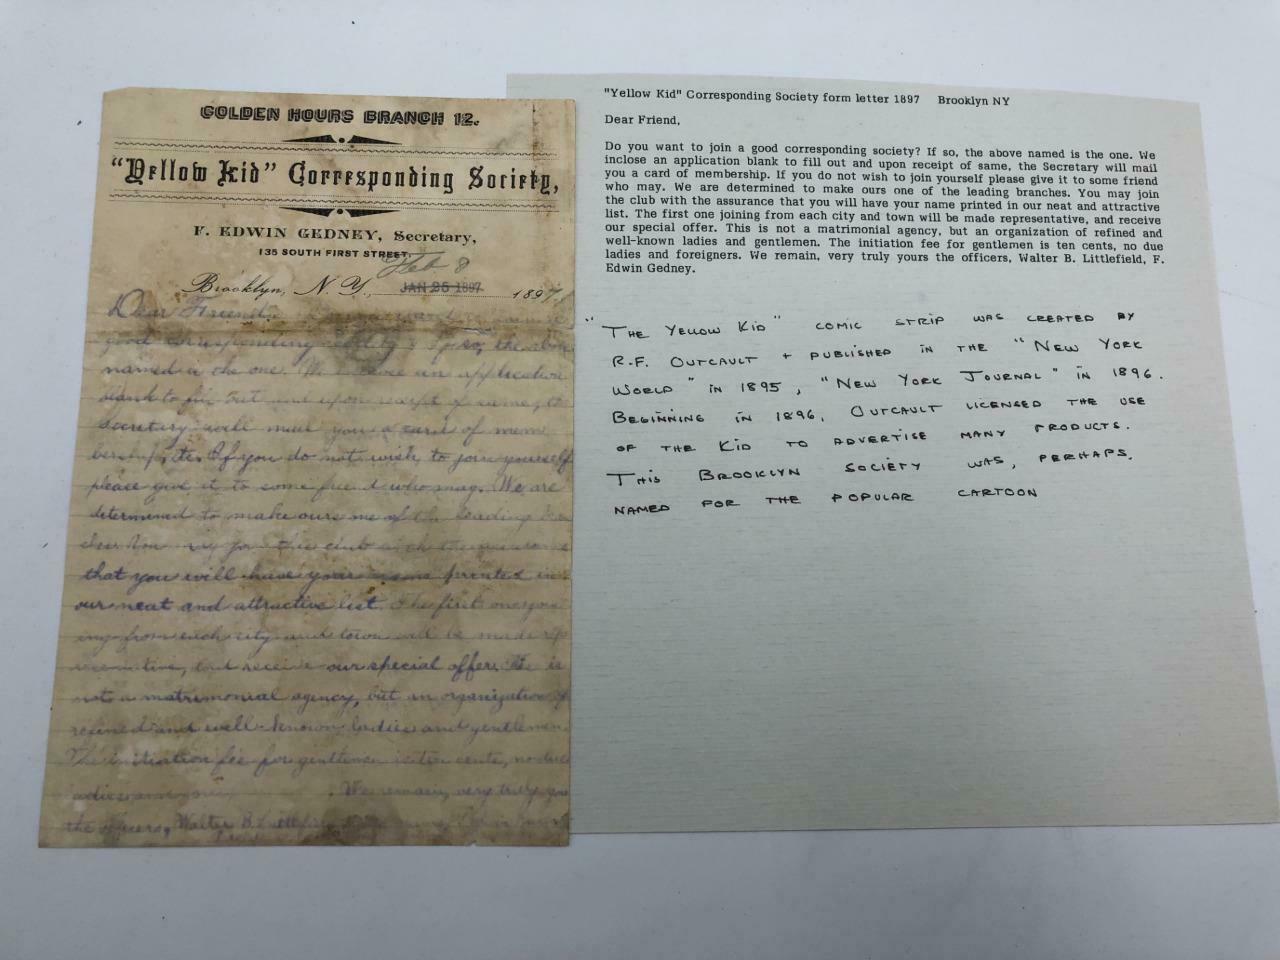 GOLDEN HOURS BRANCH 12.
"Yellow Kid" Corresponding Society,
F. EDWIN GEDNEY, Secretary,
135 SOUTH FIRST STREET.
Feb 8
Brooklyn, N. Y., JAN 25 1897 1897
Dear Friend
good corresponding society? If so, the above
named is the one. We inclose an application
blank to fill out and upon receipt of same, the
Secretary will mail you a card of mem
bership, etc. If you do not wish to join yourself
please give it to some friend who may. We are
determined to make ours one of the leading
You may join this club with the assurance
that you will have your name printed in
our neat and attractive list. The first one join
ing from each city and town will be made rep
resentative, and receive our special offer. This is
not a matrimonial agency, but an organization of
refined and well-known ladies and gentlemen
The initiation fee for gentlemen is ten cents, no due
ladies and We remain, very truly you
the officers, Walter B. Littlefield
"Yellow Kid" Corresponding Society form letter 1897 Brooklyn NY
Dear Friend,
Do you want to join a good corresponding society? If so, the above named is the one. We
inclose an application blank to fill out and upon receipt of same, the Secretary will mail
you a card of membership. If you do not wish to join yourself please give it to some friend
who may. We are determined to make ours one of the leading branches. You may join
the club with the assurance that you will have your name printed in our neat and attractive
list. The first one joining from each city and town will be made representative, and receive
our special offer. This is not a matrimonial agency, but an organization of refined and
well-known ladies and gentlemen. The initiation fee for gentlemen is ten cents, no due
ladies and foreigners. We remain, very truly yours the officers, Walter B. Littlefield, F.
Edwin Gedney.
"THE YELLOW KID" COMIC STRIP WAS CREATED BY
R.F. OUTCAULT + PUBLISHED IN THE "NEW YORK
WORLD" IN 1895, "NEW YORK JOURNAL" IN 1896.
BEGINNING IN 1896, OUTCAULT LICENSED THE USE
OF THE KID TO ADVERTISE MANY PRODUCTS.
THIS BROOKLYN SOCIETY WAS, PERHAPS,
NAMED FOR THE POPULAR CARTOON